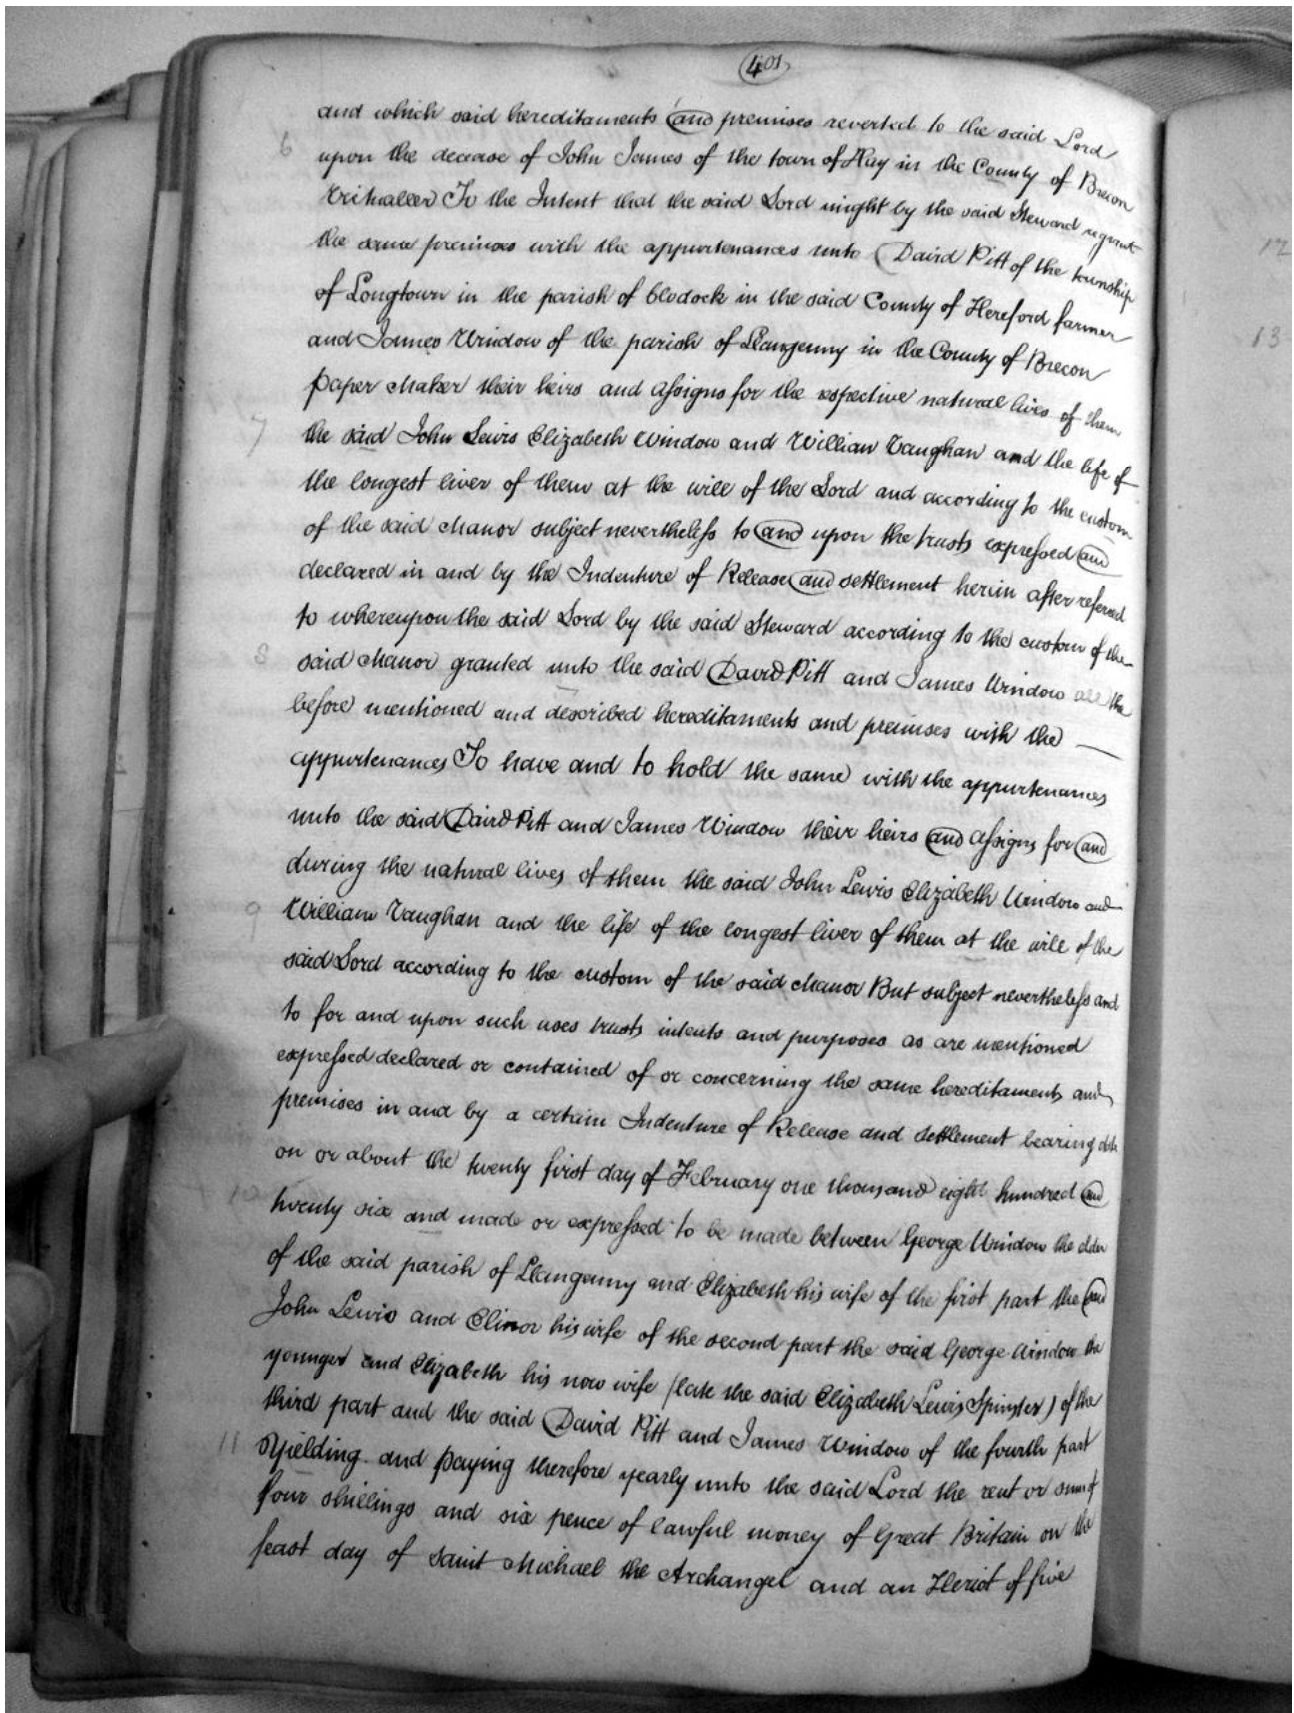 401
and which said hereditaments and premises reverted to the said Lord
6
upon the decease of John James of the town of Hay in the County of Brecon
Victualler To the Intent that the said Lord might by the said Steward regrant
the same premises with the appurtenances unto David Pitt of the township
of Longtown in the parish of Clodock in the said County of Hereford farmer
and James Window of the parish of Llangenny in the County of Brecon
paper Maker their heirs and assigns for the respective natural lives of them
7
the said John Lewis Elizabeth Window and William Vaughan and the life of
the longest liver of them at the will of the Lord and according to the custom
of the said Manor subject nevertheless to and upon the trusts expressed and
declared in and by the Indenture of Release and settlement herein after referred
to whereupon the said Lord by the said Steward according to the custom of the
8
said Manor granted unto the said David Pitt and James Window all the
before mentioned and described hereditaments and premises with the
appurtenances To have and to hold the same with the appurtenances
unto the said David Pitt and James Window their heirs and assigns for and
during the natural lives of them the said John Lewis Elizabeth Window and
9
William Vaughan and the life of the longest liver of them at the will of the
said Lord according to the custom of the said Manor But subject nevertheless and
to for and upon such uses trusts intents and purposes as are mentioned
expressed declared or contained of or concerning the same hereditaments and
premises in and by a certain Indenture of Release and settlement bearing date
on or about the twenty first day of February one thousand eight hundred and
10
twenty six and made or expressed to be made between George Window the elder
of the said parish of Llangenny and Elizabeth his wife of the first part the said
John Lewis and Elinor his wife of the second part the said George Window the
younger and Elizabeth his now wife (late the said Elizabeth Lewis Spinster) of the
third part and the said David Pitt and James Window of the fourth part
11
Yielding and paying therefore yearly unto the said Lord the rent or sum of
four shillings and six pence of lawful money of Great Britain on the
feast day of Saint Michael the Archangel and an Heriot of five
12
13